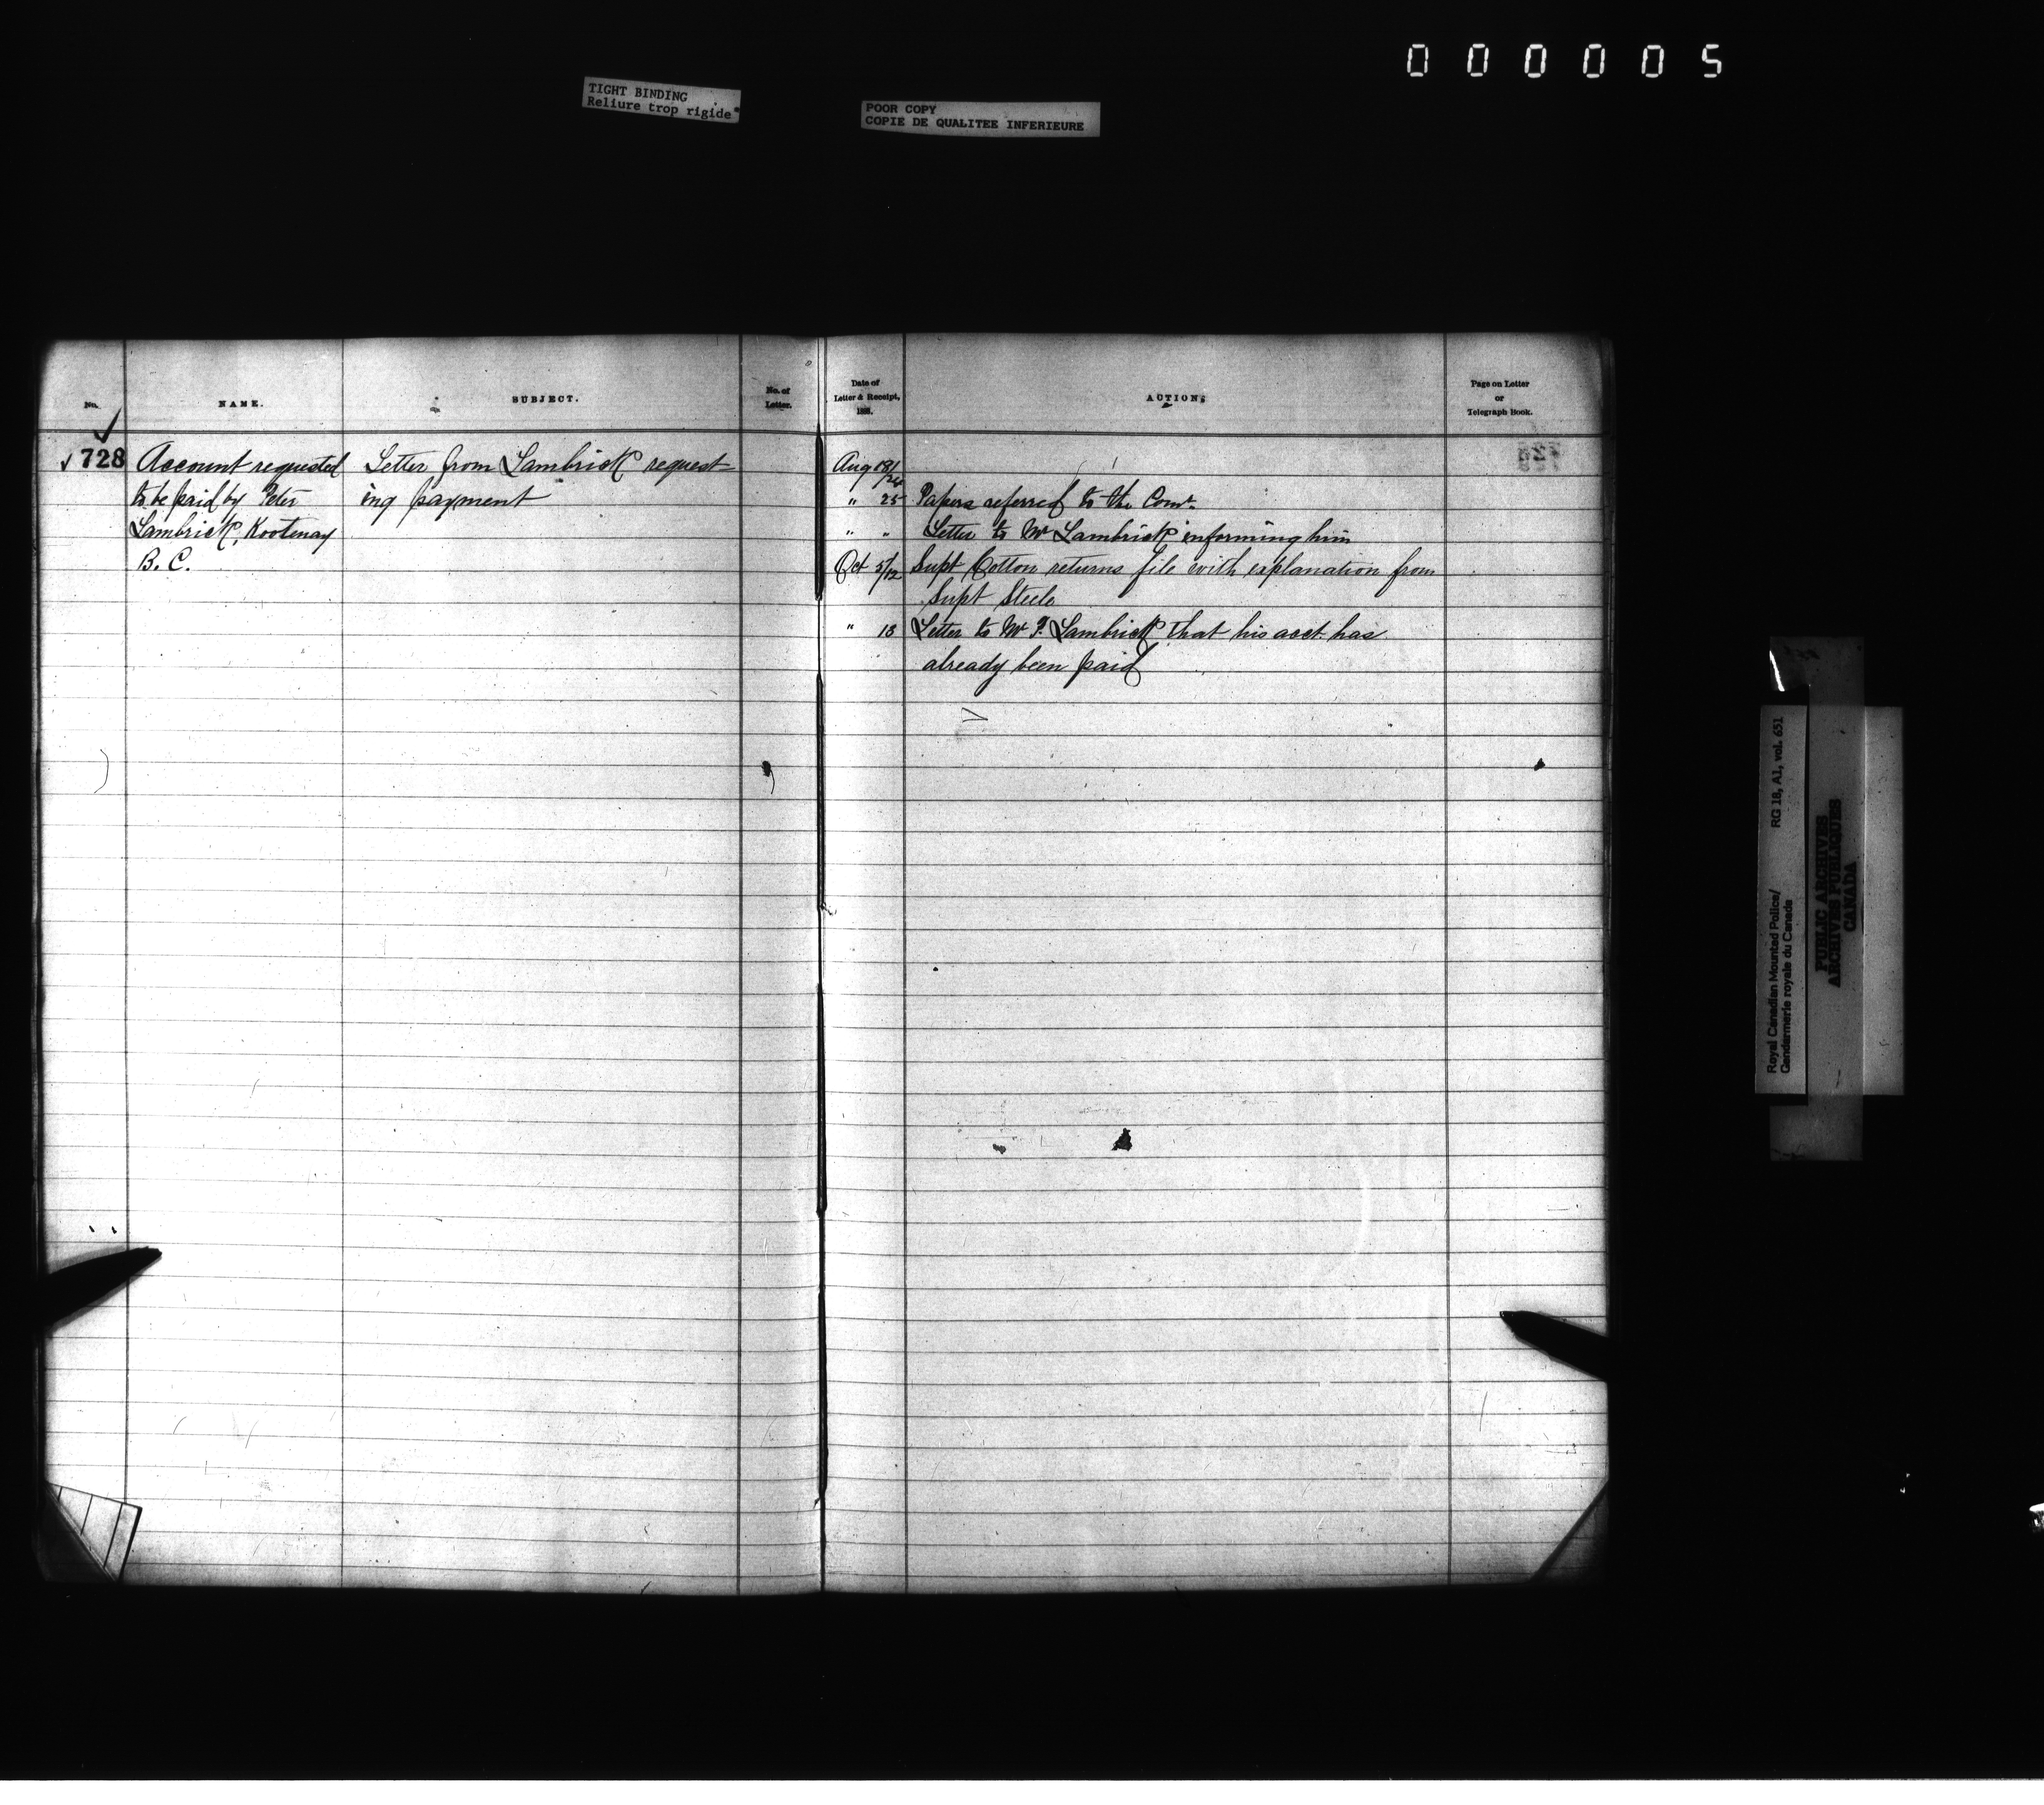 000005
TIGHT BINDING
Reliure trop rigide
POOR COPY
COPIE DE QUALITEE INFERIEURE
No.
NAME.
SUBJECT.
No. of
Letter.
Date of
Letter & Receipt,
188.
ACTION.
Page on Letter
or
Telegraph Book.
728 Account requested Letter from Lambrick request Aug
to be paid by Peter ing payment " 25 Papers referred to the Comr.
Lambrick, Kootenay " " Letter to Mr Lambrick informing him
B. C. Oct 5/12 Supt Cotton returns file with explanation from
Supt Steele
" 13 Letter to Mr P. Lambrick that his acct has
already been paid
Royal Canadian Mounted Police/
Gendarmerie royale du Canada
RG 18, A1, vol. 651
PUBLIC ARCHIVES
ARCHIVES PUBLIQUES
CANADA